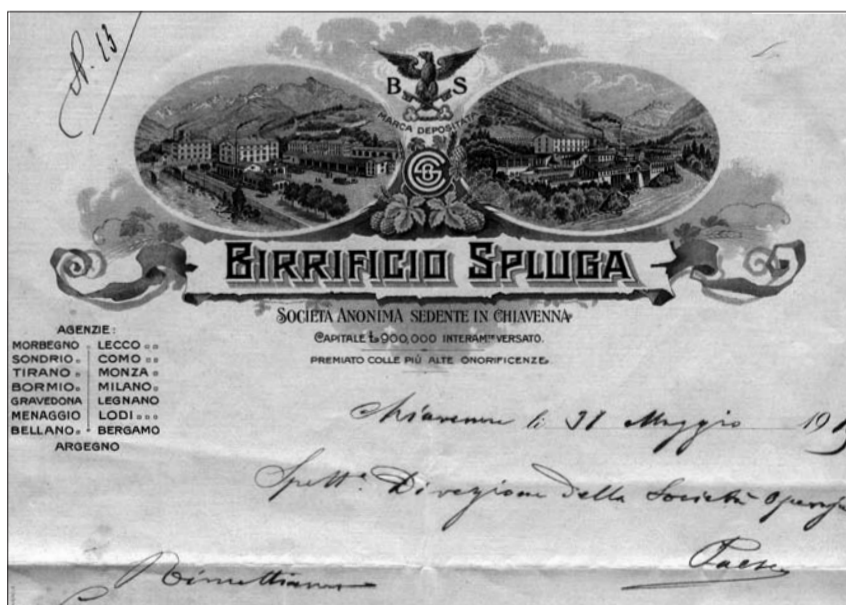 N. 13
B S
MARCA DEPOSITATA
BIRRIFICIO SPLUGA
SOCIETÀ ANONIMA SEDENTE IN CHIAVENNA
CAPITALE L. 900,000 INTERAM.TE VERSATO.
PREMIATO COLLE PIÙ ALTE ONORIFICENZE.
AGENZIE:
MORBEGNO LECCO
SONDRIO COMO
TIRANO MONZA
BORMIO MILANO
GRAVEDONA LEGNANO
MENAGGIO LODI
BELLANO BERGAMO
ARGEGNO
Chiavenna li 31 Maggio 191
Spett. Direzione della Società Operaja
Paese
Rimettiamo